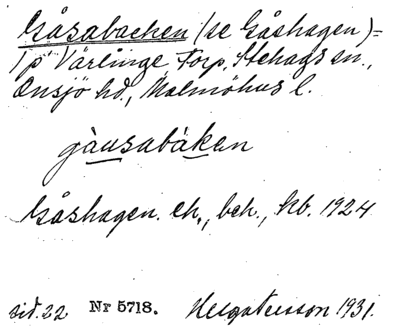 Gåsabacken (se Gåshagen)=
1 p Värlinge Torp, Stehags sn.,
Onsjö hd., Malmöhus l.
gàusabàken
Gåshagen. eh., beh., hb. 1924
sid. 22 Nr 5718. Helga Persson 1931.